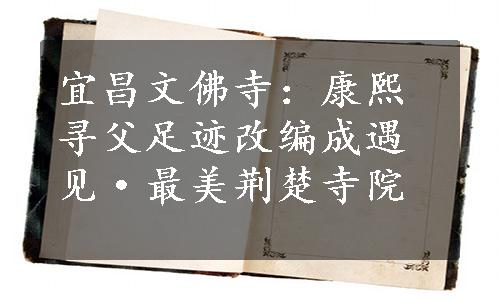 宜昌文佛寺：康熙
寻父足迹改编成遇
见·最美荆楚寺院